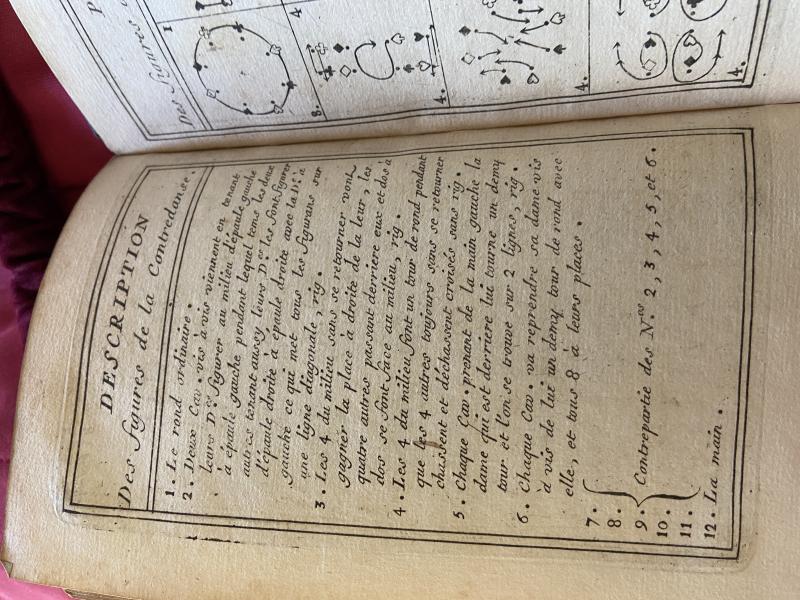 DESCRIPTION
Des figures de la Contredanse.
1. Le rond ordinaire.
2. Deux Cav. vis à vis viennent en tenant
leurs Des figurer au milieu d'épaule gauche
à épaule gauche pendant lequel tems les deux
autres tenant aussy leurs Des les font figurer
d'épaule droite à épaule droite avec la De à
gauche ce qui met tous les figurans sur
une ligne diagonale, rig.
3. Les 4 du milieu sans se retourner vont
gagner la place à droite de la leur, les
quatre autres passant derriere eux et dos à
dos se font face au milieu, rig.
4. Les 4 du milieu font un tour de rond pendant
que les 4 autres toujours sans se retourner
chassent et déchassent croisés sans rig.
5. Chaque Cav. prenant de la main gauche la
dame qui est derriere lui tourne un demy
tour et l'on se trouve sur 2 lignes, rig.
6. Chaque Cav. va reprendre sa dame vis
à vis de lui un demy tour de rond avec
elle, et tous 8 à leurs places.
7.
8.
9. Contrepartie des Nos 2, 3, 4, 5, et 6.
10.
11.
12. La main.
Des figures
1
4
8.
4.
4.
4.